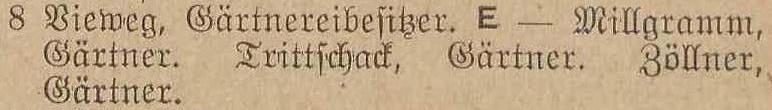 8 Vieweg, Gärtnereibesitzer. E — Millgramm,
Gärtner. Trittschack, Gärtner. Zöllner,
Gärtner.